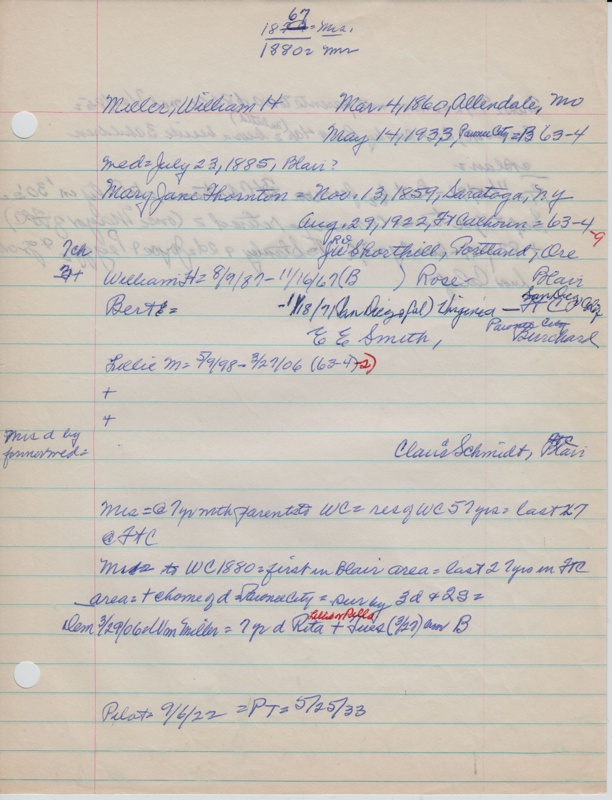 67
18 = Mrs.
1880 = Mr
Miller, William H Mar. 4, 1860, Allendale, Mo
May 14, 1933, Pawnee City = B 63-4
med = July 23, 1885, Blair?
Mary Jane Thornton = Nov. 13, 1859, Saratoga, NY
Aug. 29, 1922, Ft Calhoun = 63-4-9
7ch Portland, Ore
William H = 8/9/87 - 11/16/67 (B ) Rose Blair
Bert E = - 1/18/71 (San Diego Cal) Virginia - San Diego Calif
Pawnee City
E E Smith, Burchard
Lillie M = 5/9/98 - 3/27/06 (63-4)-2)
+
+
Mrs d by
former med =
Schmidt, Blair
Mrs = @ 7yr mth parents to WC = res of WC 57yrs = last 27
@ FtC
to WC 1880 = first in Blair area = last 27yrs in FtC
area = + @ home of d = Pawnee City = sur by 3d & 2s =
Dem 3/29/06 = d Wm Miller = 7yr d Rita + (3/27) B
Lillian Rilla
Pilot = 9/6/22 = PT = 5/25/33